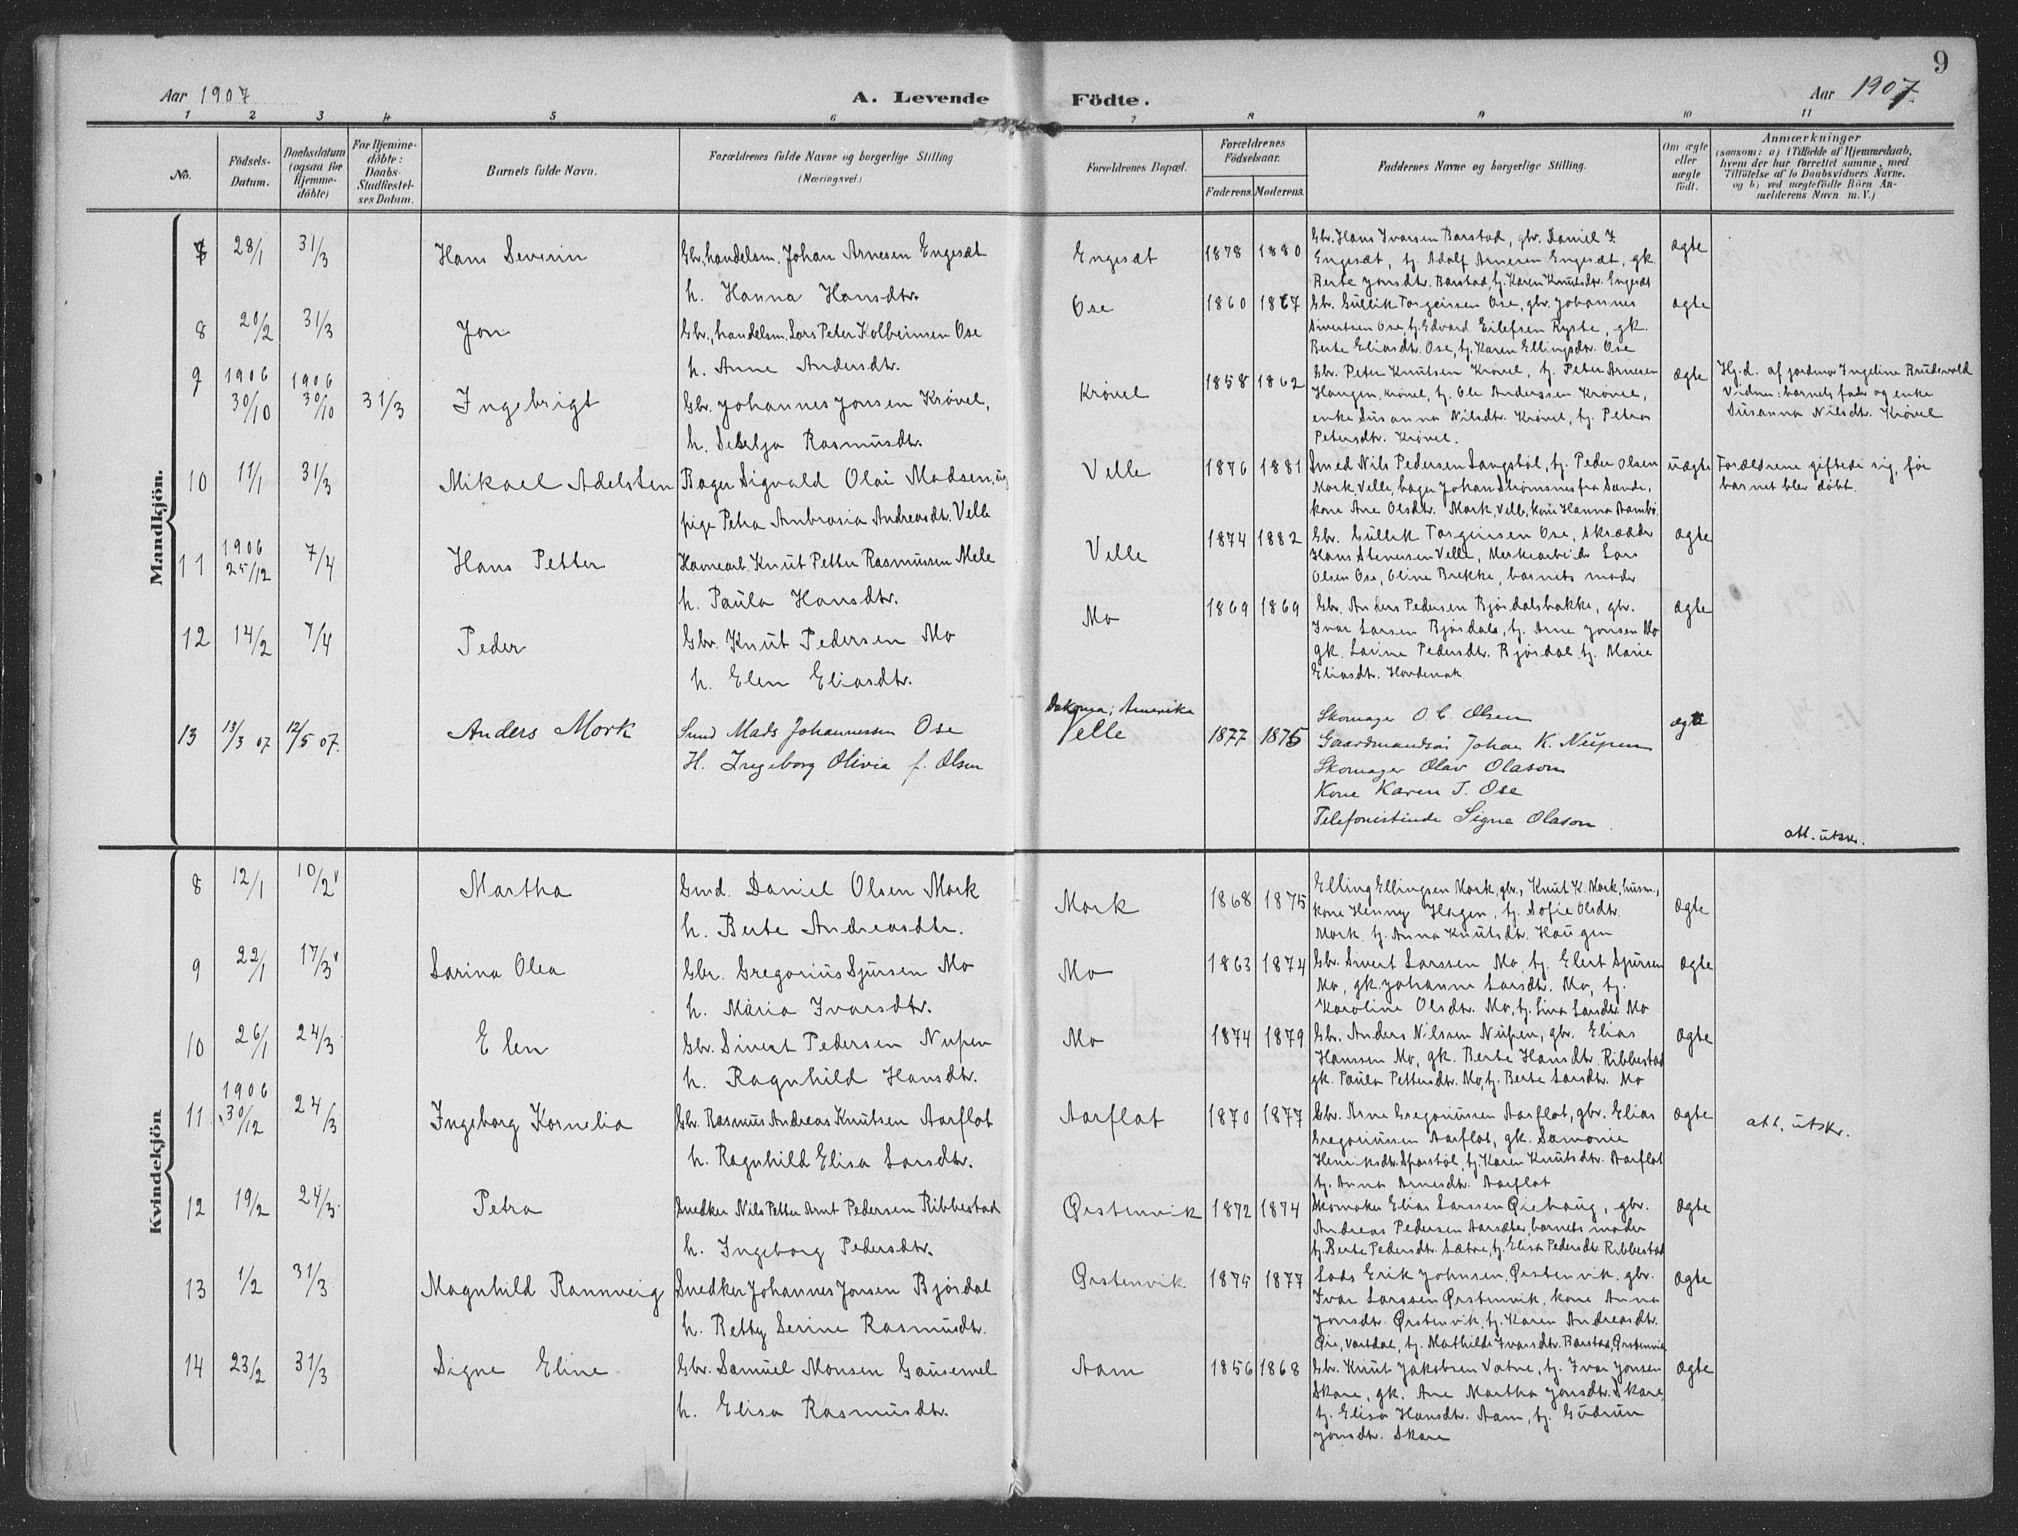 9
Aar 1907
A. Levende Födte.
Aar 1907
1 2 3 4 5 6 7 8 9 10 11
No.
Födsels-
Datum.
Daabsdatum
(ogsaa for
Hjemme-
döbte)
For Hjemme-
döbte:
Daabs-
Stadfæstel-
ses Datum.
Barnets fulde Navn.
Forældrenes fulde Navne og borgerlige Stilling
(Næringsvei.)
Forældrenes Bopæl.
Forældrenes
Födselsaar.
Faderens. Moderens.
Faddernes Navne og borgerlige Stilling.
Om ægte
eller
uægte
født.
Anmærkninger
(saasom: a) i Tilfælde af Hjemmedaab,
hvem der har forrettet samme, med
Tilföielse af to Daabsvidners Navne.
og b) ved uægtefödte Börn An-
melderens Navn m. V.)
Mandkjön.
7 28/1 31/3 Hans Severin
Gbr., handelsm. Johan Arnesen Engesæt
h. Hanna Hansdtr.
Engesæt 1878 1880
Gbr. Hans Ivarsen Barstad, gbr. Daniel J.
Engesæt, tj. Adolf Arnesen Engesæt, gk.
Berte Jonsdtr. Barstad, tj. Karen Knutsdtr. Engesæt
ægte
8 20/2 31/3 Jon
Gbr., handelsm. Lars Peter Kolbeinsen Ose
h. Anne Andersdtr.
Ose 1860 1867
Gbr. Gullik Torgeirsen Ose, gbr. Johannes
Sivertsen Ose, tj. Edvard Eilefsen Ryste, gk.
Berte Eliasdtr. Ose, tj. Karen Ellingsdtr. Ose
ægte
9 1906 30/10 1906 30/10 31/3 Ingebrigt
Gbr. Johannes Jonsen Krövel,
h. Deselja Rasmusdtr.
Krövel 1858 1862
Gbr. Peter Knutsen Krövel, tj. Peter Arnesen
Haugen, Krövel, tj. Ole Anderssen Krövel,
enke Susanna Nilsdtr. Krövel, tj. Petra
Petersdtr. Krövel.
ægte
Hj.d. af jordmor Ingeline Brudevold
Vidner: barnets fader og enke
Susanna Nilsdtr. Krövel
10 11/1 31/3 Mikael Adelsten
Bager Sigvald Olai Madsen, ug
pige Petra Ambrosia Andreasdtr. Velle
Velle 1876 1881
Smed Nils Pedersen Langstöl, tj. Peder Olsen
Mork, Velle, bager Johan Strömsnes fra Sande,
kone Ane Olsdtr. Mork, Velle, kone Hanna Aambö.
uægte
Forældrene giftede sig, før
barnet blev döbt.
11 1906 25/12 7/4 Hans Petter
Havnearb. Knut Petter Rasmussen Mele
h. Paula Hansdtr.
Velle 1874 1882
Gbr. Gullik Torgeirsen Ose, skrædder
Hans Stenersen Velle, Merkearbeider Lars
Olsen Ose, Oline Brekke, barnets moder
ægte
12 14/2 7/4 Peder
Gbr. Knut Pedersen Mo
h. Elen Eliasdtr.
Mo 1869 1869
Gbr. Anders Pedersen Bjørdalsbakke, gbr.
Ivar Larsen Bjørdal, tj. Arne Jonsen Mo
gk. Larine Pedersdtr. Bjørdal, tj. Marie
Eliasdtr. Hovdenak
ægte
13 13/3 07 12/5 07. Anders Mork
Smed Mads Johannessen Ose
H. Ingeborg Olivia f. Olsen
Dakona, Amerika
Velle 1877 1875
Skomager O. C. Olsen
Gaardmandsøn Johan K. Nupen
Skomager Olav Olason
Kone Karen J. Ose
Telefonistinde Signe Olason.
ægte
att. utskr.
Kvindekjön
8 12/1 10/2 Martha
Gmd. Daniel Olsen Mork
h. Berte Andreasdtr.
Mork 1868 1875
Elling Ellingsen Mork, gbr., Knut K. Mork, husm.,
kone Henny Hagen, tj. Sofie Olsdtr.
Mork, tj. Anna Knutsdtr. Haugen
ægte
9 22/1 17/3 Larina Olea
Gbr. Gregorius Sjursen Mo
h. Maria Ivarsdtr.
Mo 1863 1874
Gbr. Sivert Larssen Mo, tj. Elert Sjursen
Mo, gk. Johanne Larsdtr. Mo, tj.
Karoline Olsdtr. Mo, tj. Lina Larsdtr. Mo
ægte
10 26/1 24/3 Elen
Gbr. Sivert Pedersen Nupen
h. Ragnhild Hansdtr.
Mo 1874 1879
Gbr. Anders Nilssen Nupen, gbr. Elias
Hanssen Mo, gk. Berte Hansdtr. Ribbestad
gk. Paula Pettersdtr. Mo, tj. Berte Larsdtr. Mo
ægte
11 1906 30/12 24/3 Ingeborg Kornelia
Gbr. Rasmus Andreas Knutsen Aarflot
h. Ragnhild Elisa Larsdtr.
Aarflot 1870 1877
Gbr. Arne Gregoriussen Aarflot, gbr. Elias
Gregoriussen Aarflot, gk. Samonie
Henriksdtr. Sparstöl, tj. Karen Knutsdtr. Aarflot
tj. Anna Arnesdtr. Aarflot
ægte
att. utskr.
12 19/2 24/3 Petra
Snedker Nils Petter Arnt Pedersen Ribbestad
h. Ingeborg Pedersdtr.
Ørstenvik 1872 1874
Skomaker Elias Larssen Øiehaug, gbr.
Andreas Pedersen Aarsæter, barnets moder
tj. Berte Pedersdtr. Sætre, tj. Elisa Pedersdtr. Ribbestad
ægte
13 1/2 31/3 Magnhild Rannveig
Snedker Johannes Jonsen Bjørdal
h. Betty Serine Rasmusdtr.
Ørstenvik 1875 1877
Lods Erik Johnsen, Ørstenvik, gbr.
Ivar Larssen Ørstenvik, kone Anna
Jonsdtr. Ørstenvik, tj. Karen Andreasdtr.
Øie, Vartdal, tj. Mathilde Ivarsdtr. Barstad, Ørstenvik
ægte
14 23/2 31/3 Signe Eline
Gbr. Samuel Monsen Gausemel
h. Elisa Rasmusdtr.
Aam 1856 1868
Gbr. Knut Jakobsen Vatne, tj. Ivar Jonsen
Skare, gk. Ane Martha Jonsdtr. Skare,
tj. Elisa Hansdtr. Aam, tj. Gudrun
Jonsdtr. Skare
ægte